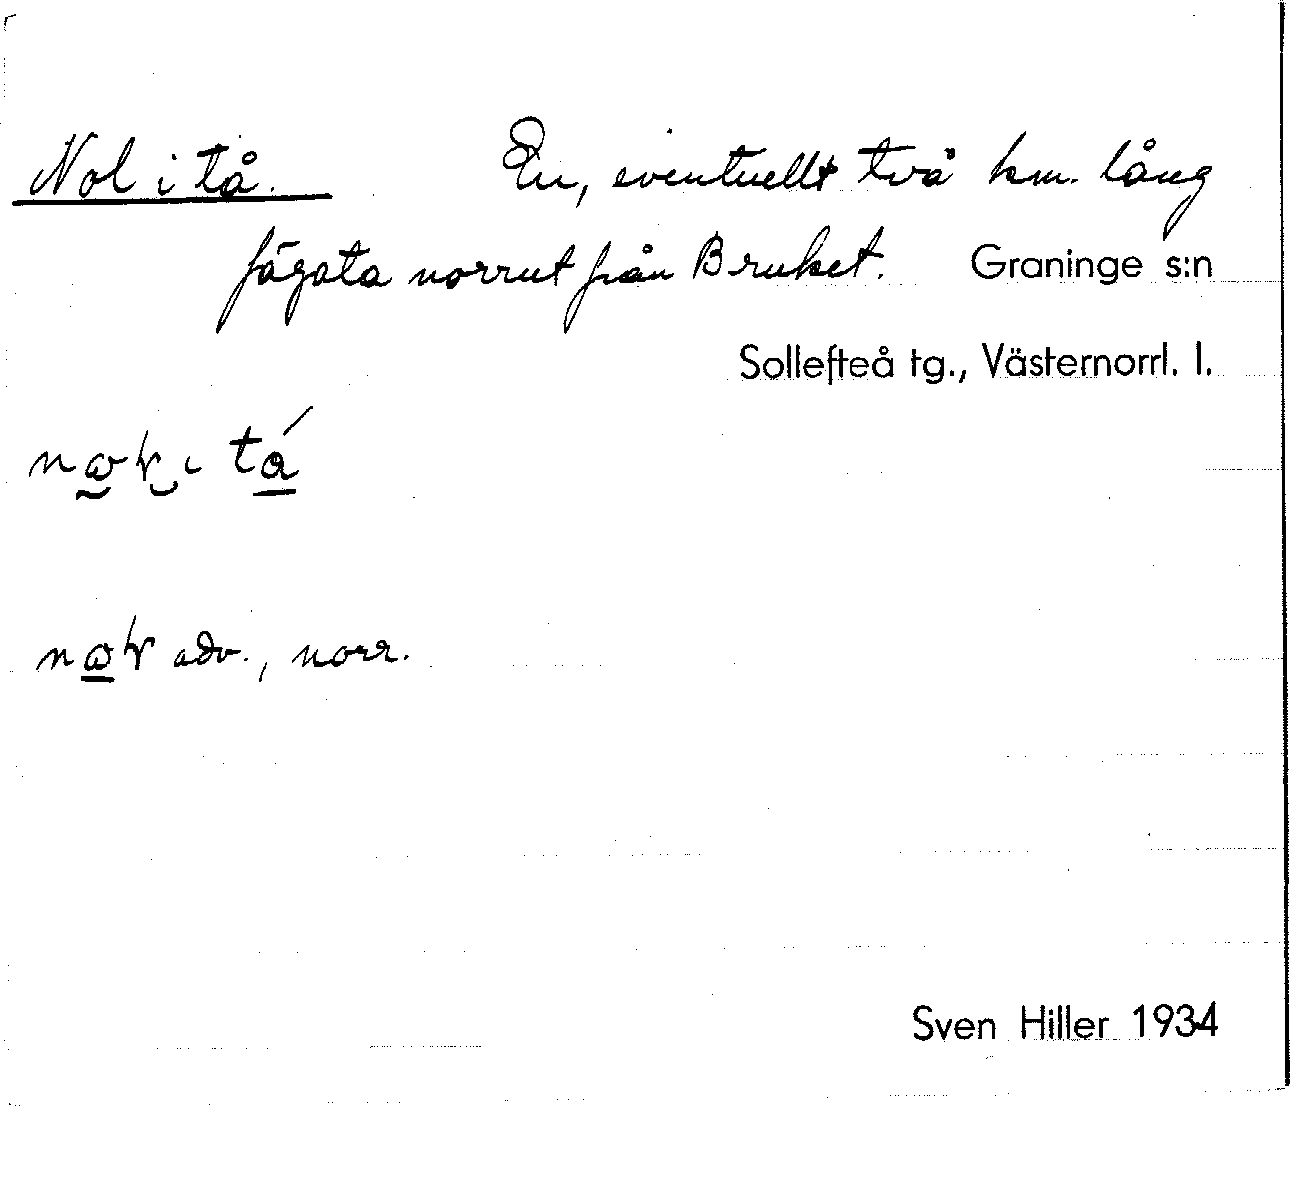 Nol i tå. En, eventuellt två km. lång
fägata norrut från Bruket. Graninge s:n
Sollefteå tg., Västernorrl. l.
adv., norr.
Sven Hiller 1934